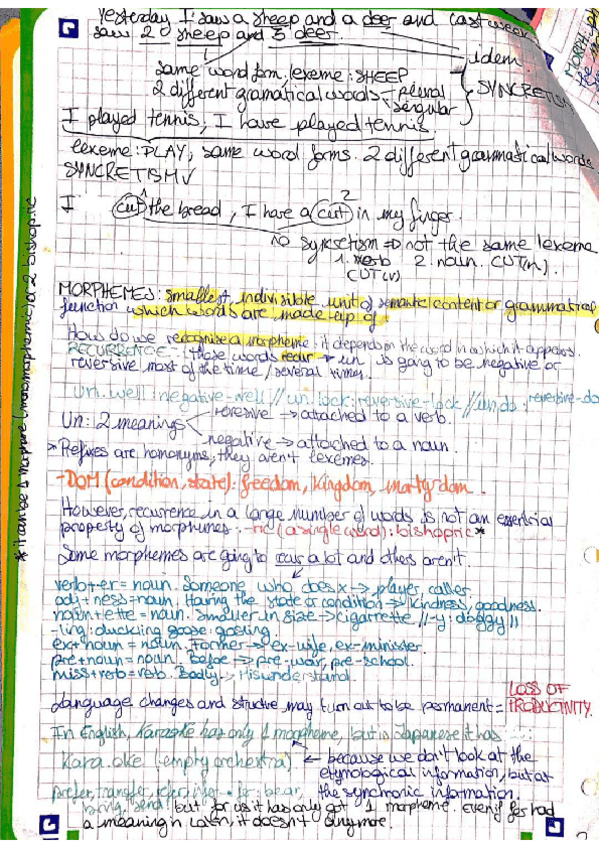 Yesterday I saw a sheep and a deer and last week
saw 20 sheep and 3 deer.
idem
same word form. lexeme: SHEEP
2 different gramatical words
plural
singular
SYNCRETISM
MORPH
I played tennis; I have played tennis.
lexeme: PLAY, same word forms. 2 different grammatical words
SYNCRETISM √
1
2
I cut the bread, I have a cut in my finger.
no syncretism => not the same lexeme
1. verb 2. noun. CUT(N).
CUT(V)
MORPHEMES: smallest, indivisible unit of semantic content or grammatical
function which words are made up of.
How do we recognise a morpheme: it depends on the word in which it appears.
RECURRENCE: those words recur → un is going to be negative or
reversive most of the time / several times.
Un.well: negative-well // un.lock: reversive-lock // un.do: reversive-do
Un: 2 meanings
reversive → attached to a verb.
negative → attached to a noun.
Prefixes are homonyms, they aren't lexemes.
-DOM (condition, state): freedom, kingdom, martyrdom.
However, recurrence in a large number of words is not an essential
property of morphemes. -ric (a single word): bishopric*
Some morphemes are going to recur a lot and others aren't.
verb + er = noun. Someone who does x → player, caller
adj + ness = noun. Having the state or condition → kindness, goodness.
noun + ette = noun. Smaller in size → cigarrette // -y: doggy //
-ling: duckling goose: gosling.
ex + noun = noun. Former → ex-wife, ex-minister.
pre + noun = noun. Before → pre-war, pre-school.
miss + verb = verb. Badly → Misunderstand.
Language changes and may turn out to be permanent =
LOSS OF
PRODUCTIVITY.
In English, Karaoke has only 1 morpheme, but in Japanese it has
Kara.oke (empty orchestra) ← because we don't look at the
etymological information, but at
the synchronic information.
prefer, transfer, refer, infer → fer: bear,
bring, send but for us it has only got 1 morpheme. even if fer had
a meaning in Latin, it doesn't anymore.
* it can be 1 morpheme (monomorphemic) or 2 bishop.ric